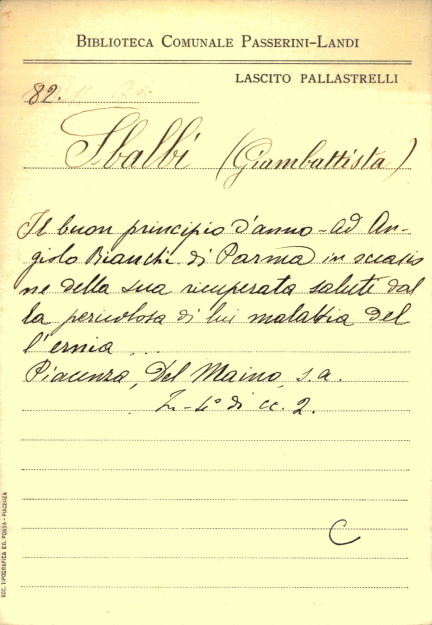 BIBLIOTECA COMUNALE PASSERINI-LANDI
LASCITO PALLASTRELLI
82.
Sbalbi (Giambattista)
Il buon principio d'anno - ad An-
giolo Bianchi di Parma in occasio
ne della sua ricuperata salute dal
la pericolosa di lui malattia del
l'ernia...
Piacenza, Del Maino, s.a.
in-4° di cc. 2.
C
SOC. TIPOGRAFICA ED. PORTA - PIACENZA